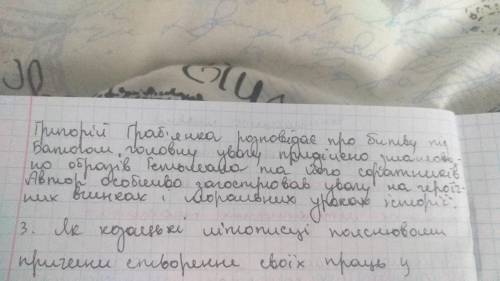 Григорій Граб'янка розповідає про битву під
Батогом, головну увагу приділено змалюван-
ню образів Гетьмана та його соратників
Автор особливо загострював увагу на героїч-
них вчинках і моральних уроках історії.
3. Як козацькі літописці пояснювали
причини створення своїх праць у